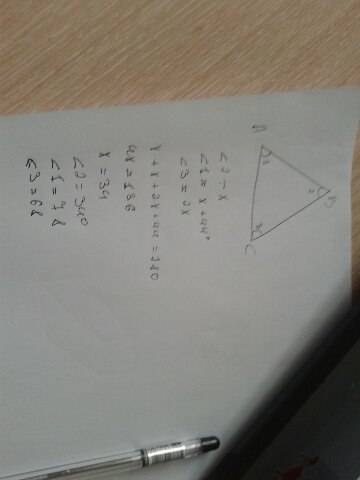 A
B
C
1
2
3
∠2 – x
∠1 = x + 44°
∠3 = 2x
x + x + 2x + 44 = 180
4x = 136
x = 34
∠2 = 34°
∠1 = 78
∠3 = 68